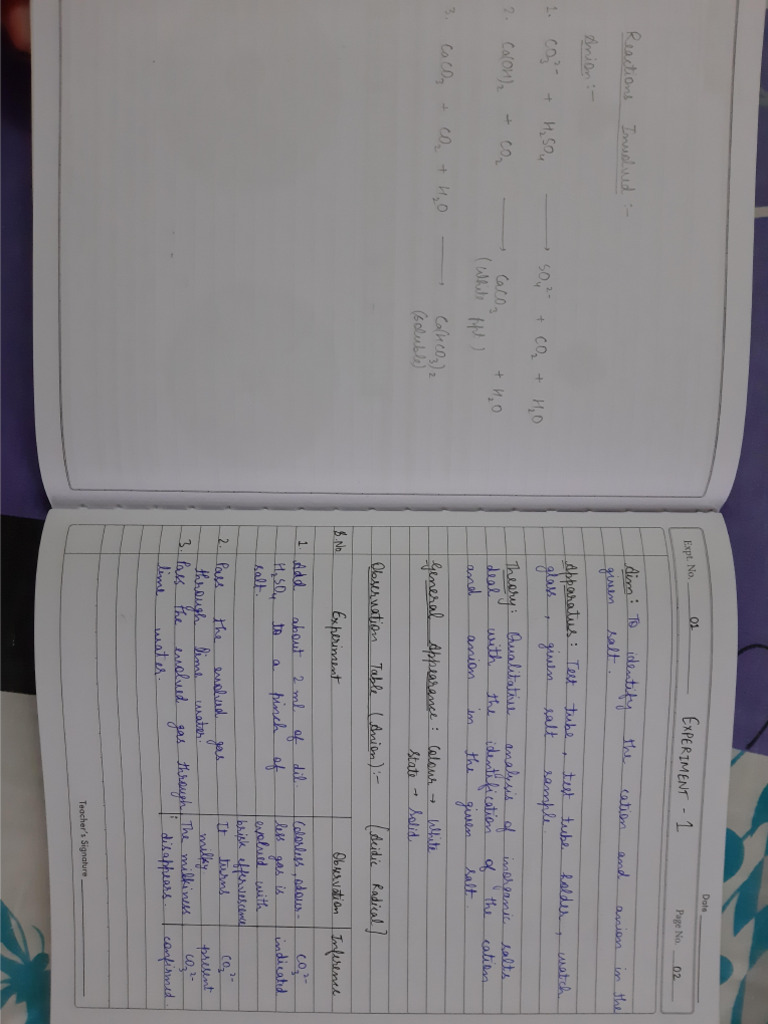 Reactions Involved :-
Anion :-
1. CO₃²⁻ + H₂SO₄ ⟶ SO₄²⁻ + CO₂ + H₂O
2. Ca(OH)₂ + CO₂ ⟶ CaCO₃ + H₂O
(White ppt)
3. CaCO₃ + CO₂ + H₂O ⟶ Ca(HCO₃)₂
(Soluble)
Date
Expt. No. 01 EXPERIMENT - 1 Page No. 02
Aim : To identify the cation and anion in the
given salt.
Apparatus : Test tube, test tube holder, watch
glass, given salt sample.
Theory : Qualitative analysis of inorganic salts
deal with the identification of the cation
and anion in the given salt.
General Appearence : Colour → White
State → Solid
Observation Table (Anion) :- [Acidic Radical]
S.No Experiment Observation Inference
1. Add about 2 ml of dil. Colorless, odour- CO₃²⁻
H₂SO₄ to a pinch of less gas is indicated
salt. evolved with
brisk effervescence
2. Pass the evolved gas It turns CO₃²⁻
through lime water. milky present
3. Pass the evolved gas through The milkiness CO₃²⁻
lime water. disappears. confirmed.
Teacher's Signature